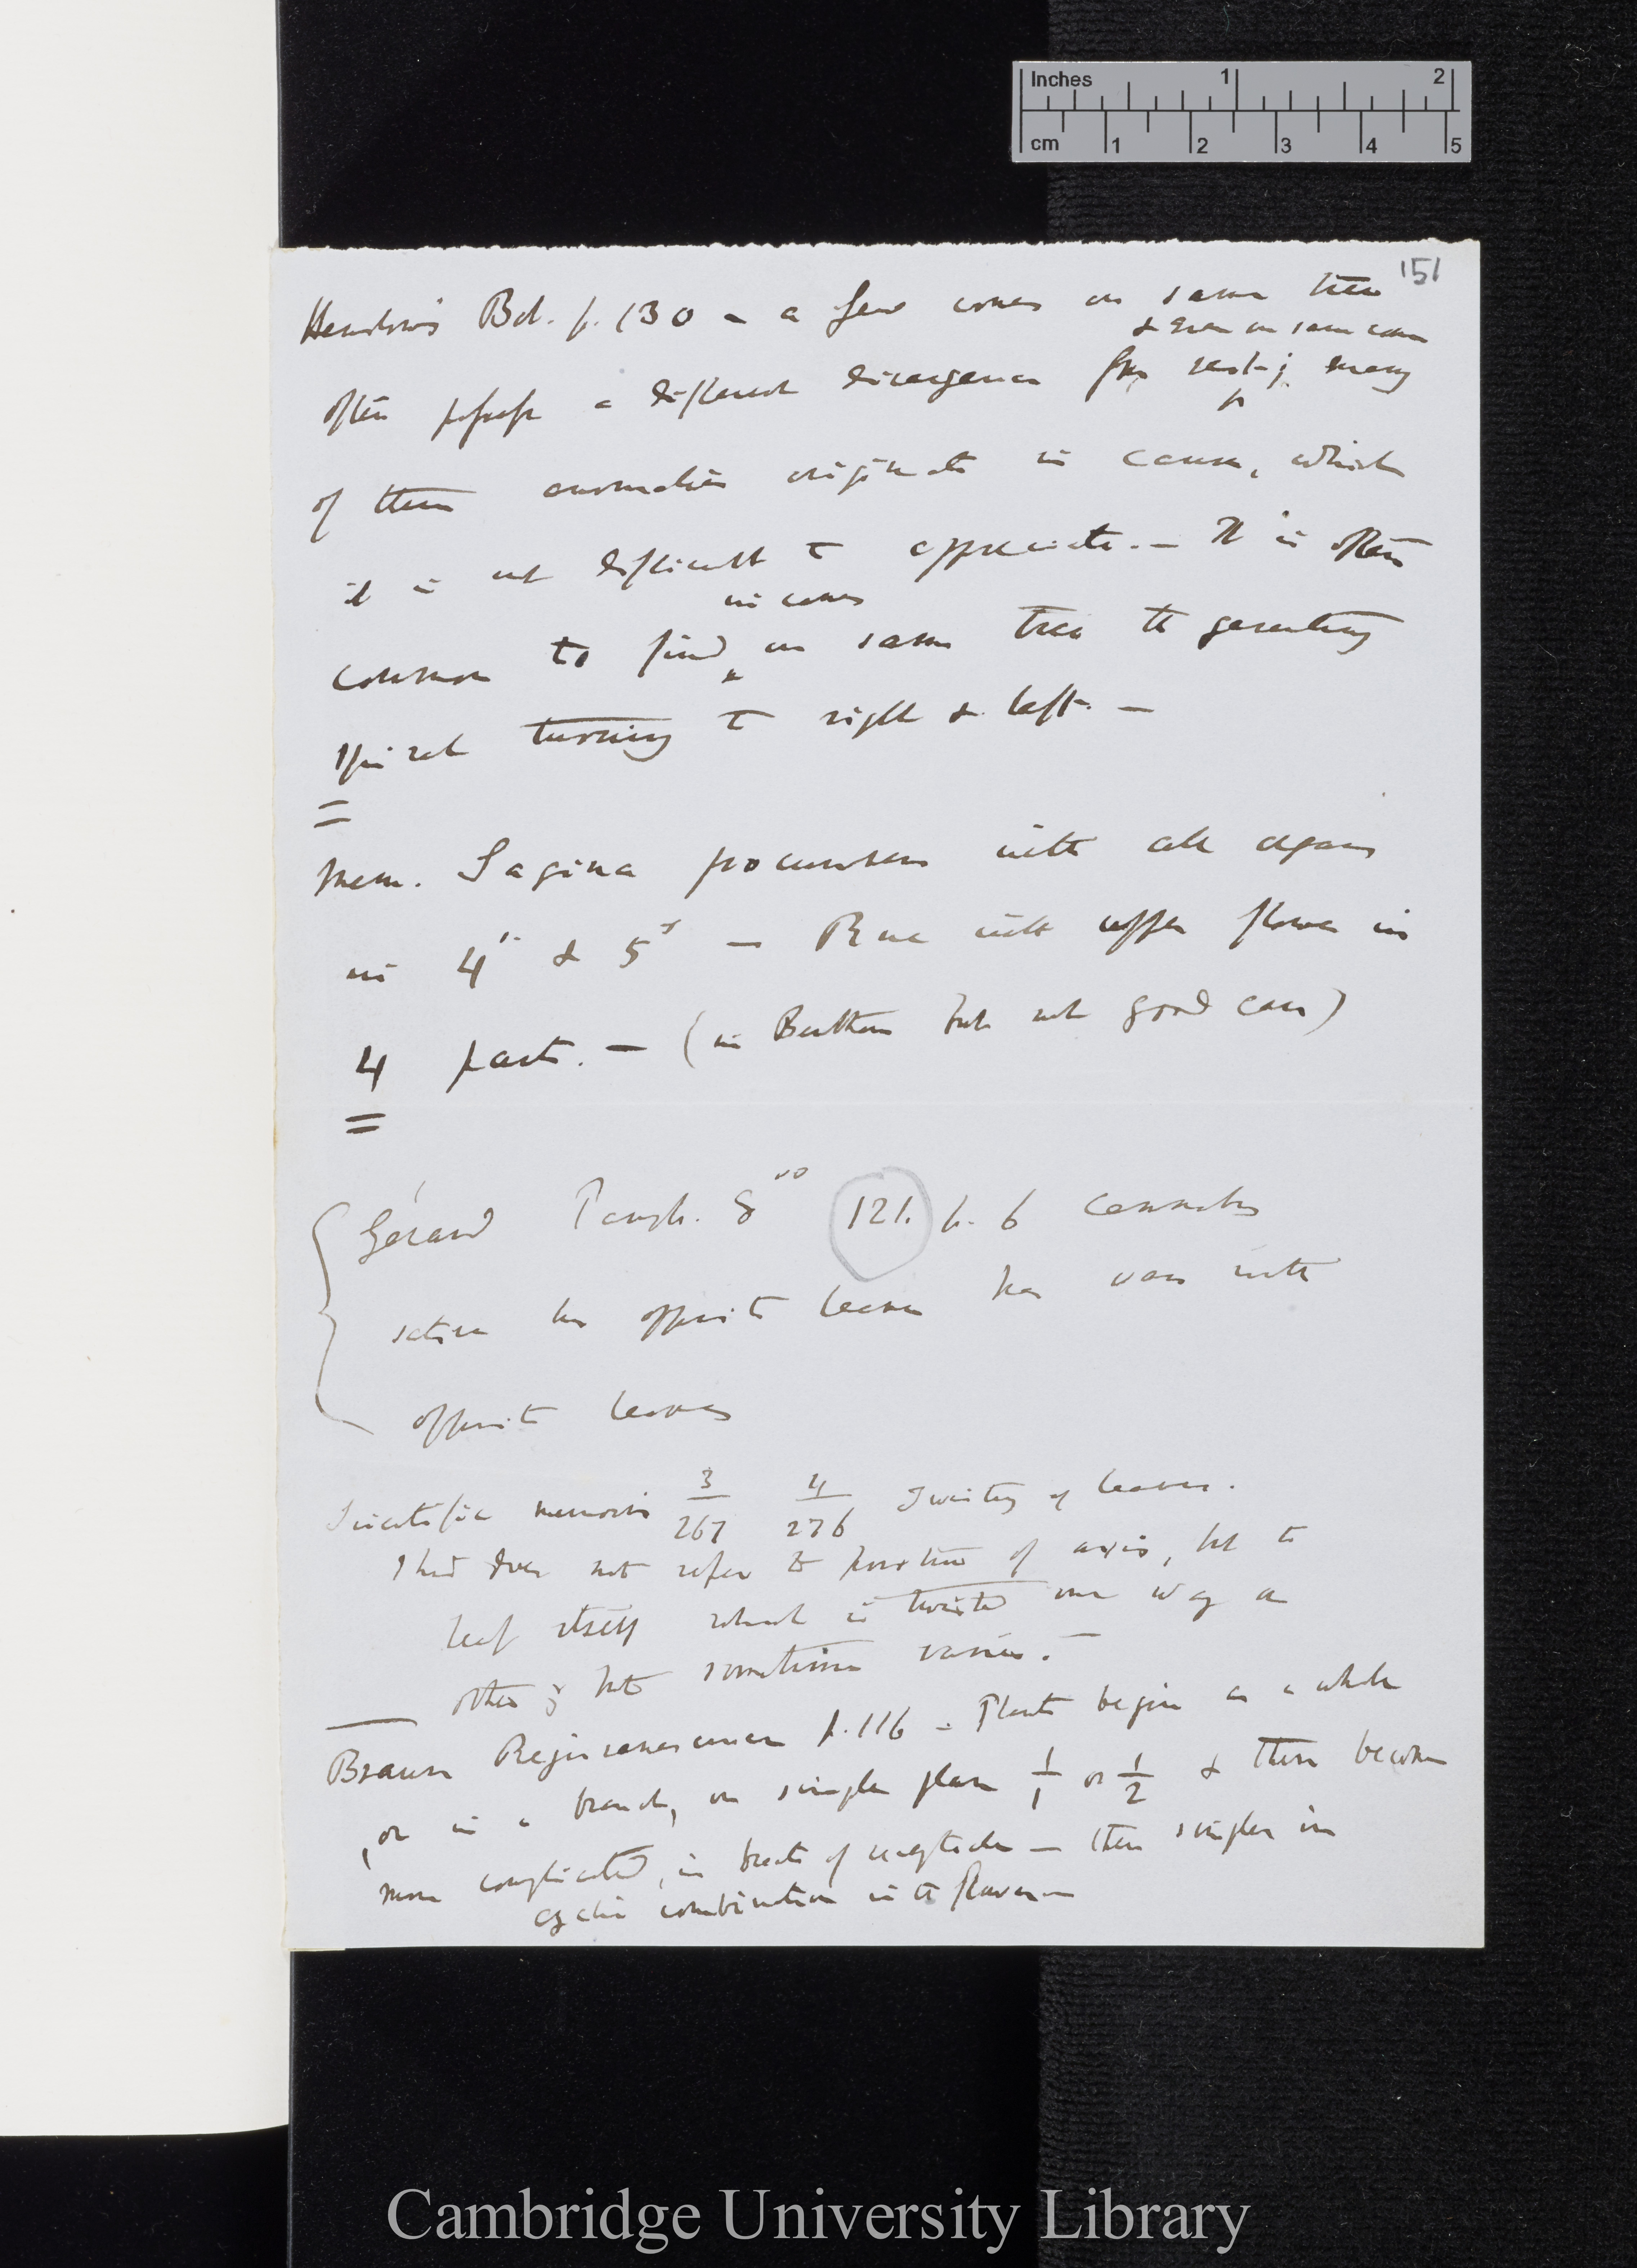 Inches 1 2
cm 1 2 3 4 5
151
Henslow's Bot. p. 130 - a few cones on same tree
& even on same cone
often possess a different divergence from rest; many
of these anomalies originate in causes, which
it is not difficult to appreciate. — It is often
in cones
common to find on same tree the generating
spiral turning to right & left. —
Mem. Sagina procumbens with all organs
in 4s & 5s — Rue with upper flower in
4 parts. — (in but not good case)
Gérard Pamph. 8vo 121. p. 6 Cannabis
sativa has opposite leaves has var with
opposite leaves
Scientific memoirs 3/267 4/276 Twisting of leaves.
This does not refer to position of axis, but to
leaf itself which is twisted one way or
other & but sometimes varies. —
Braun Rejuvenescence p. 116 - Plants begin as a whole
or in a branch, on simple plan 1/1 or 1/2 & then become
more complicated, in of — then simpler in
cyclic combination in the flower —
Cambridge University Library